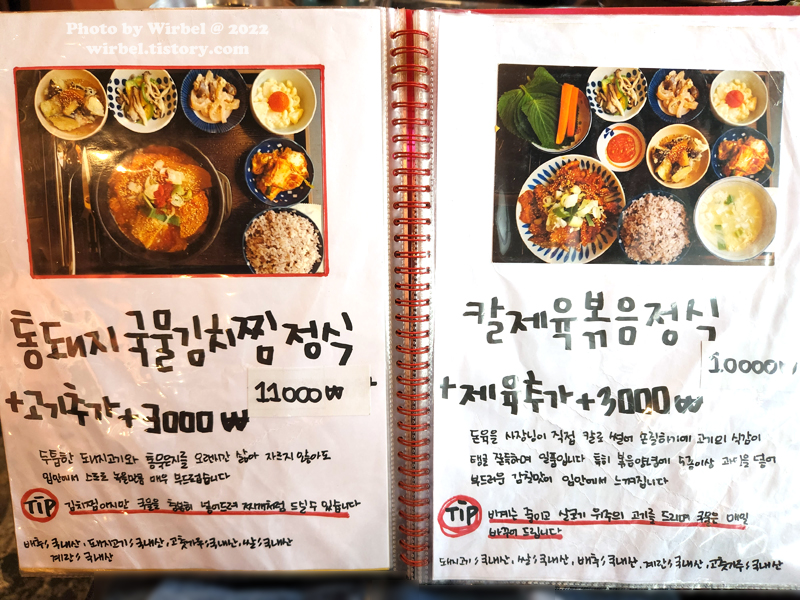 Photo by Wirbel @ 2022
wirbel.tistory.com
통돼지 국물김치찜 정식
11000₩
+고기추가+3000₩
두툼한 돼지고기와 통묵은지를 오랜시간 삶아 자르지 않아도
입안에서 스스로 녹을만큼 매우 부드럽습니다
TIP 김치찜이지만 국물을 넉넉히 넣어드려 찌개처럼 드실수 있습니다
배추:국내산, 돼지고기:국내산, 고춧가루:국내산, 쌀:국내산
계란:국내산
칼제육볶음정식
10000₩
+제육추가+3000₩
돈육을 사장님이 직접 칼로 썰어 포함하기에 고기의 식감이
잘 일품입니다 특히 볶음양념에 5종이상 과일을 넣어
부드러운 감칠맛이 입안에서 느껴집니다
TIP 비계는 줄이고 살코기 위주의 고기를 드리며 국물은 매일
바꾸어 드립니다
돼지고기:국내산, 쌀:국내산, 배추:국내산, 계란:국내산, 고춧가루:국내산